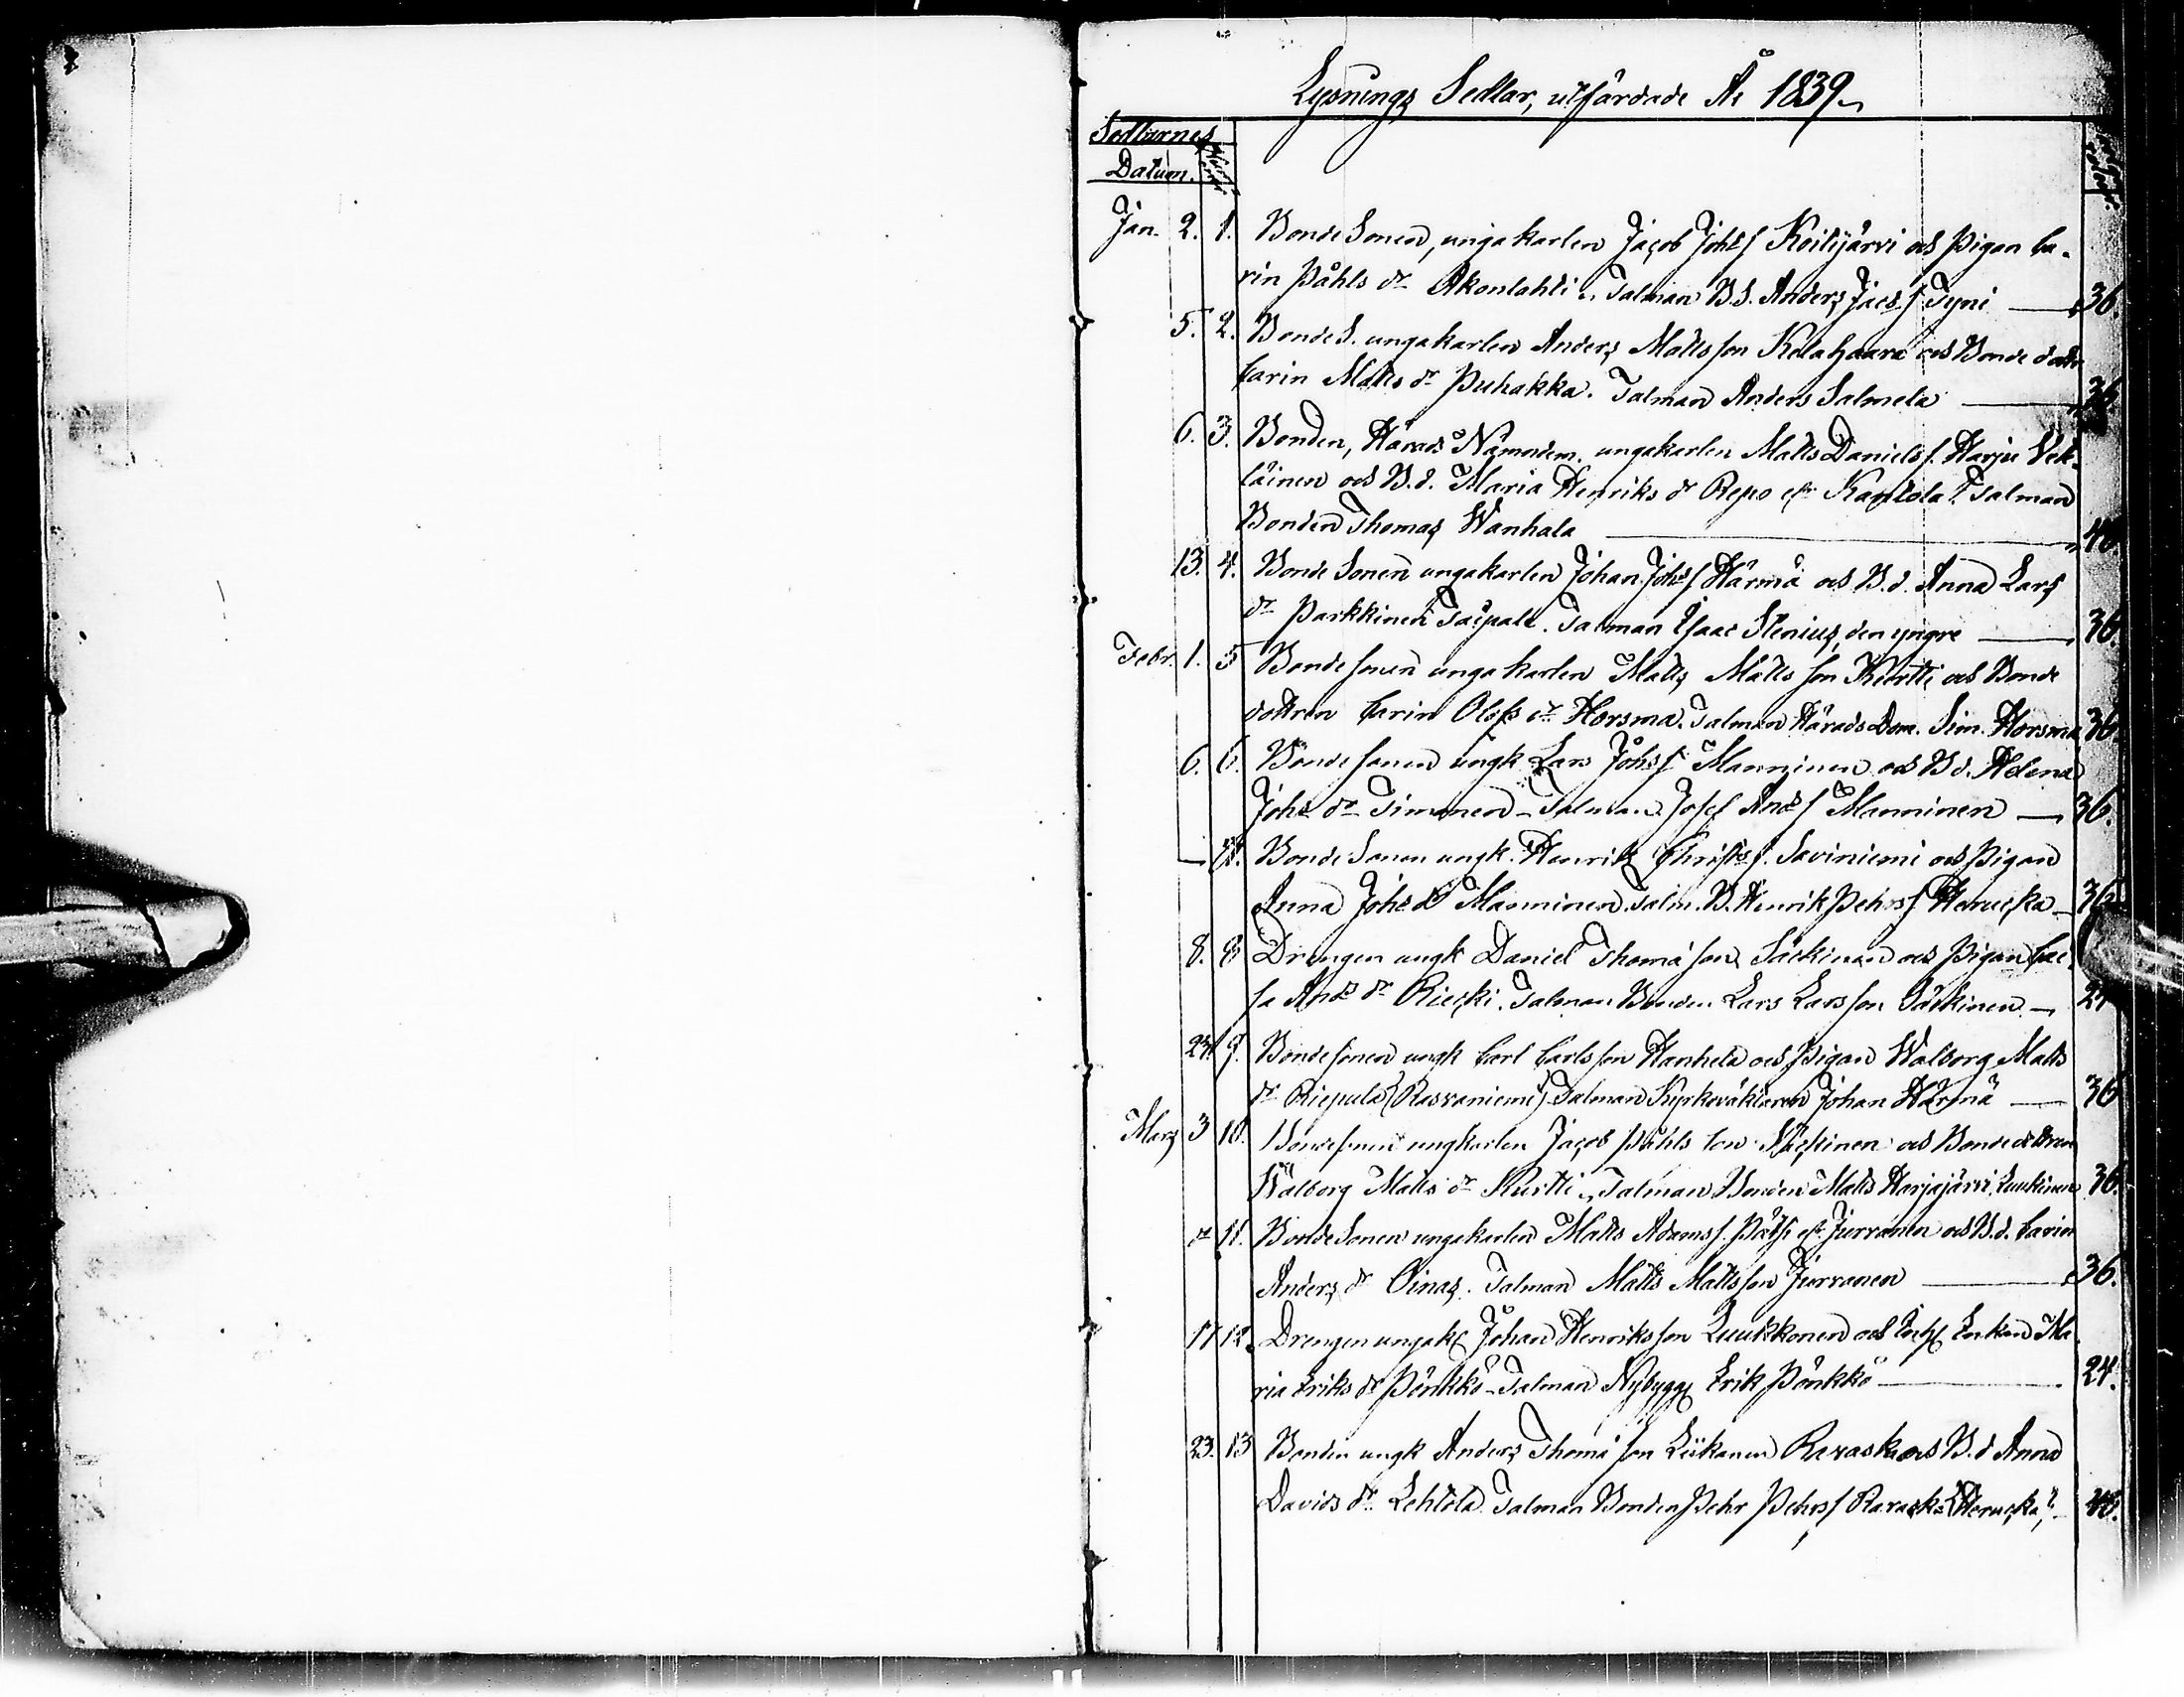 Lysnings Sedlar, utfärdade År 1839
Sedlarnes
Datum.
Jan. 2. 1. Bonde Sonen, ungakarlen Jacob Johs s. Koilijärvi och Pigan Ca-
rin Påhls dr Akonlahti. Talman B.S. Anders Jacs s. Tyni 36.
5. 2. Bonde S. ungakarlen Anders Matts son Kelahaara och Bonde dottr
Carin Matts dr Puhakka. Talman Anders Salmela 36.
6. 3. Bonden, Härads Nämndem. ungakarlen Matts Daniels s. Harju
och B.d. Maria Henriks dr Repo Kantola Talman
Bonden Thomas Wanhala 48.
13. 4. Bonde Sonen ungakarlen Johan Johs s Härmä och B.d. Anna Lars
dr Parkkinen Taipale. Talman Isaac Stenius, den yngre 36.
Febr. 1. 5 Bonde sonen ungakarlen Matts Matts son Kurtti och Bonde
dottren Carin Olofs dr Horsma. Talman Härads Dom. Sim. Horsma 36.
6. 6. Bonde sonen ungk Lars Johs s Manninen och B.d. Helena
Johs dr Timonen Talman Josef Ands s Manninen 36.
7. Bonde Sonen ungk. Henrik Christs s. Saviniemi och Pigan
Anna Johs dr Manninen. Talm. B. Henrik Pehrs s Heruska 36
8. 8 Drengen ungk Daniel Thoma son Säkkinen och Pigan Cai-
sa Ands dr Rieski. Talman Bonden Lars Lars son Säkkinen 24
24. 9. Bondesonen ungk Carl Carls son Hanhela och Pigan Walborg Matts
dr Riepula (Rasvaniemi) Talman Kyrkoväktaren Johan Härmä 36
Mars 3 10. Bondesonen ungkarlen Jacob Påhls son och Bondedottren
Walborg Matts dr Kurtti. Talman Bonden Matts Harjajärvi, Luukinen 36.
11. Bonde Sonen ungakarlen Matts Adams s. Jurvanen och B.d. Carin
Anders dr Oinas. Talman Matts Matts son Jurvanen 36.
17 12. Drengen ungak Johan Henriks son Luukkonen och Enkan Ma-
ria Eriks dr Pönkkö Talman Nybygg Erik Pönkkö 24.
23. 13 Bonden ungk Anders Thoma son Liikanen Ravaska och B.d Anna
Davids dr Lehtola Talman Bonden Pehr Pehrs s Ravaska (Heruska) 48.